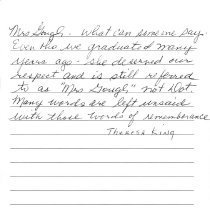 Mrs Gough - What can someone say.
Even tho we graduated many
years ago - she deserved our
respect and is still referred
to as "Mrs Gough" not Dot.
Many words are left unsaid
with those words of remembrance
Theresa King